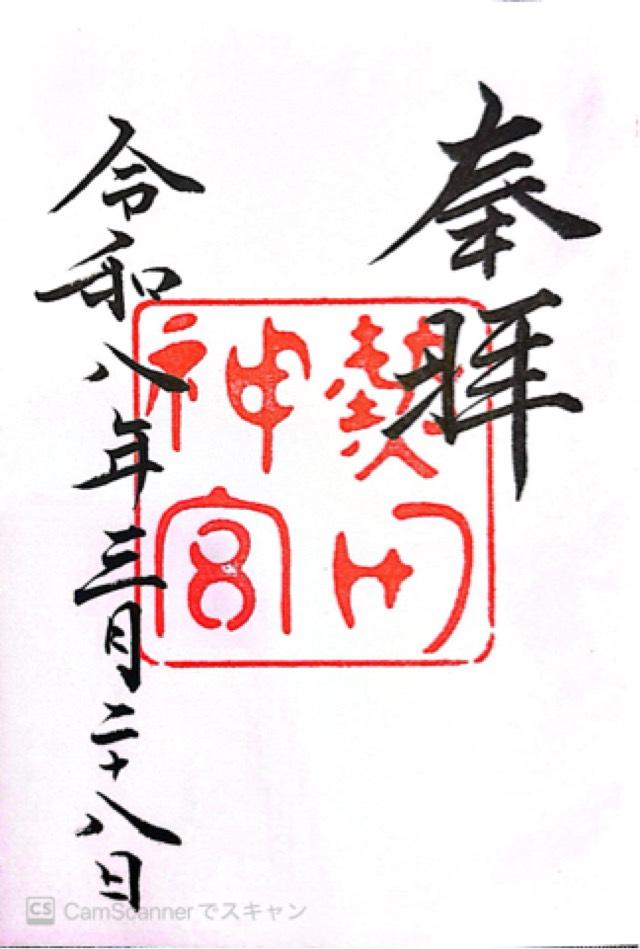 奉拝
熱田
神宮
令和八年三月二十八日
CS CamScannerでスキャン